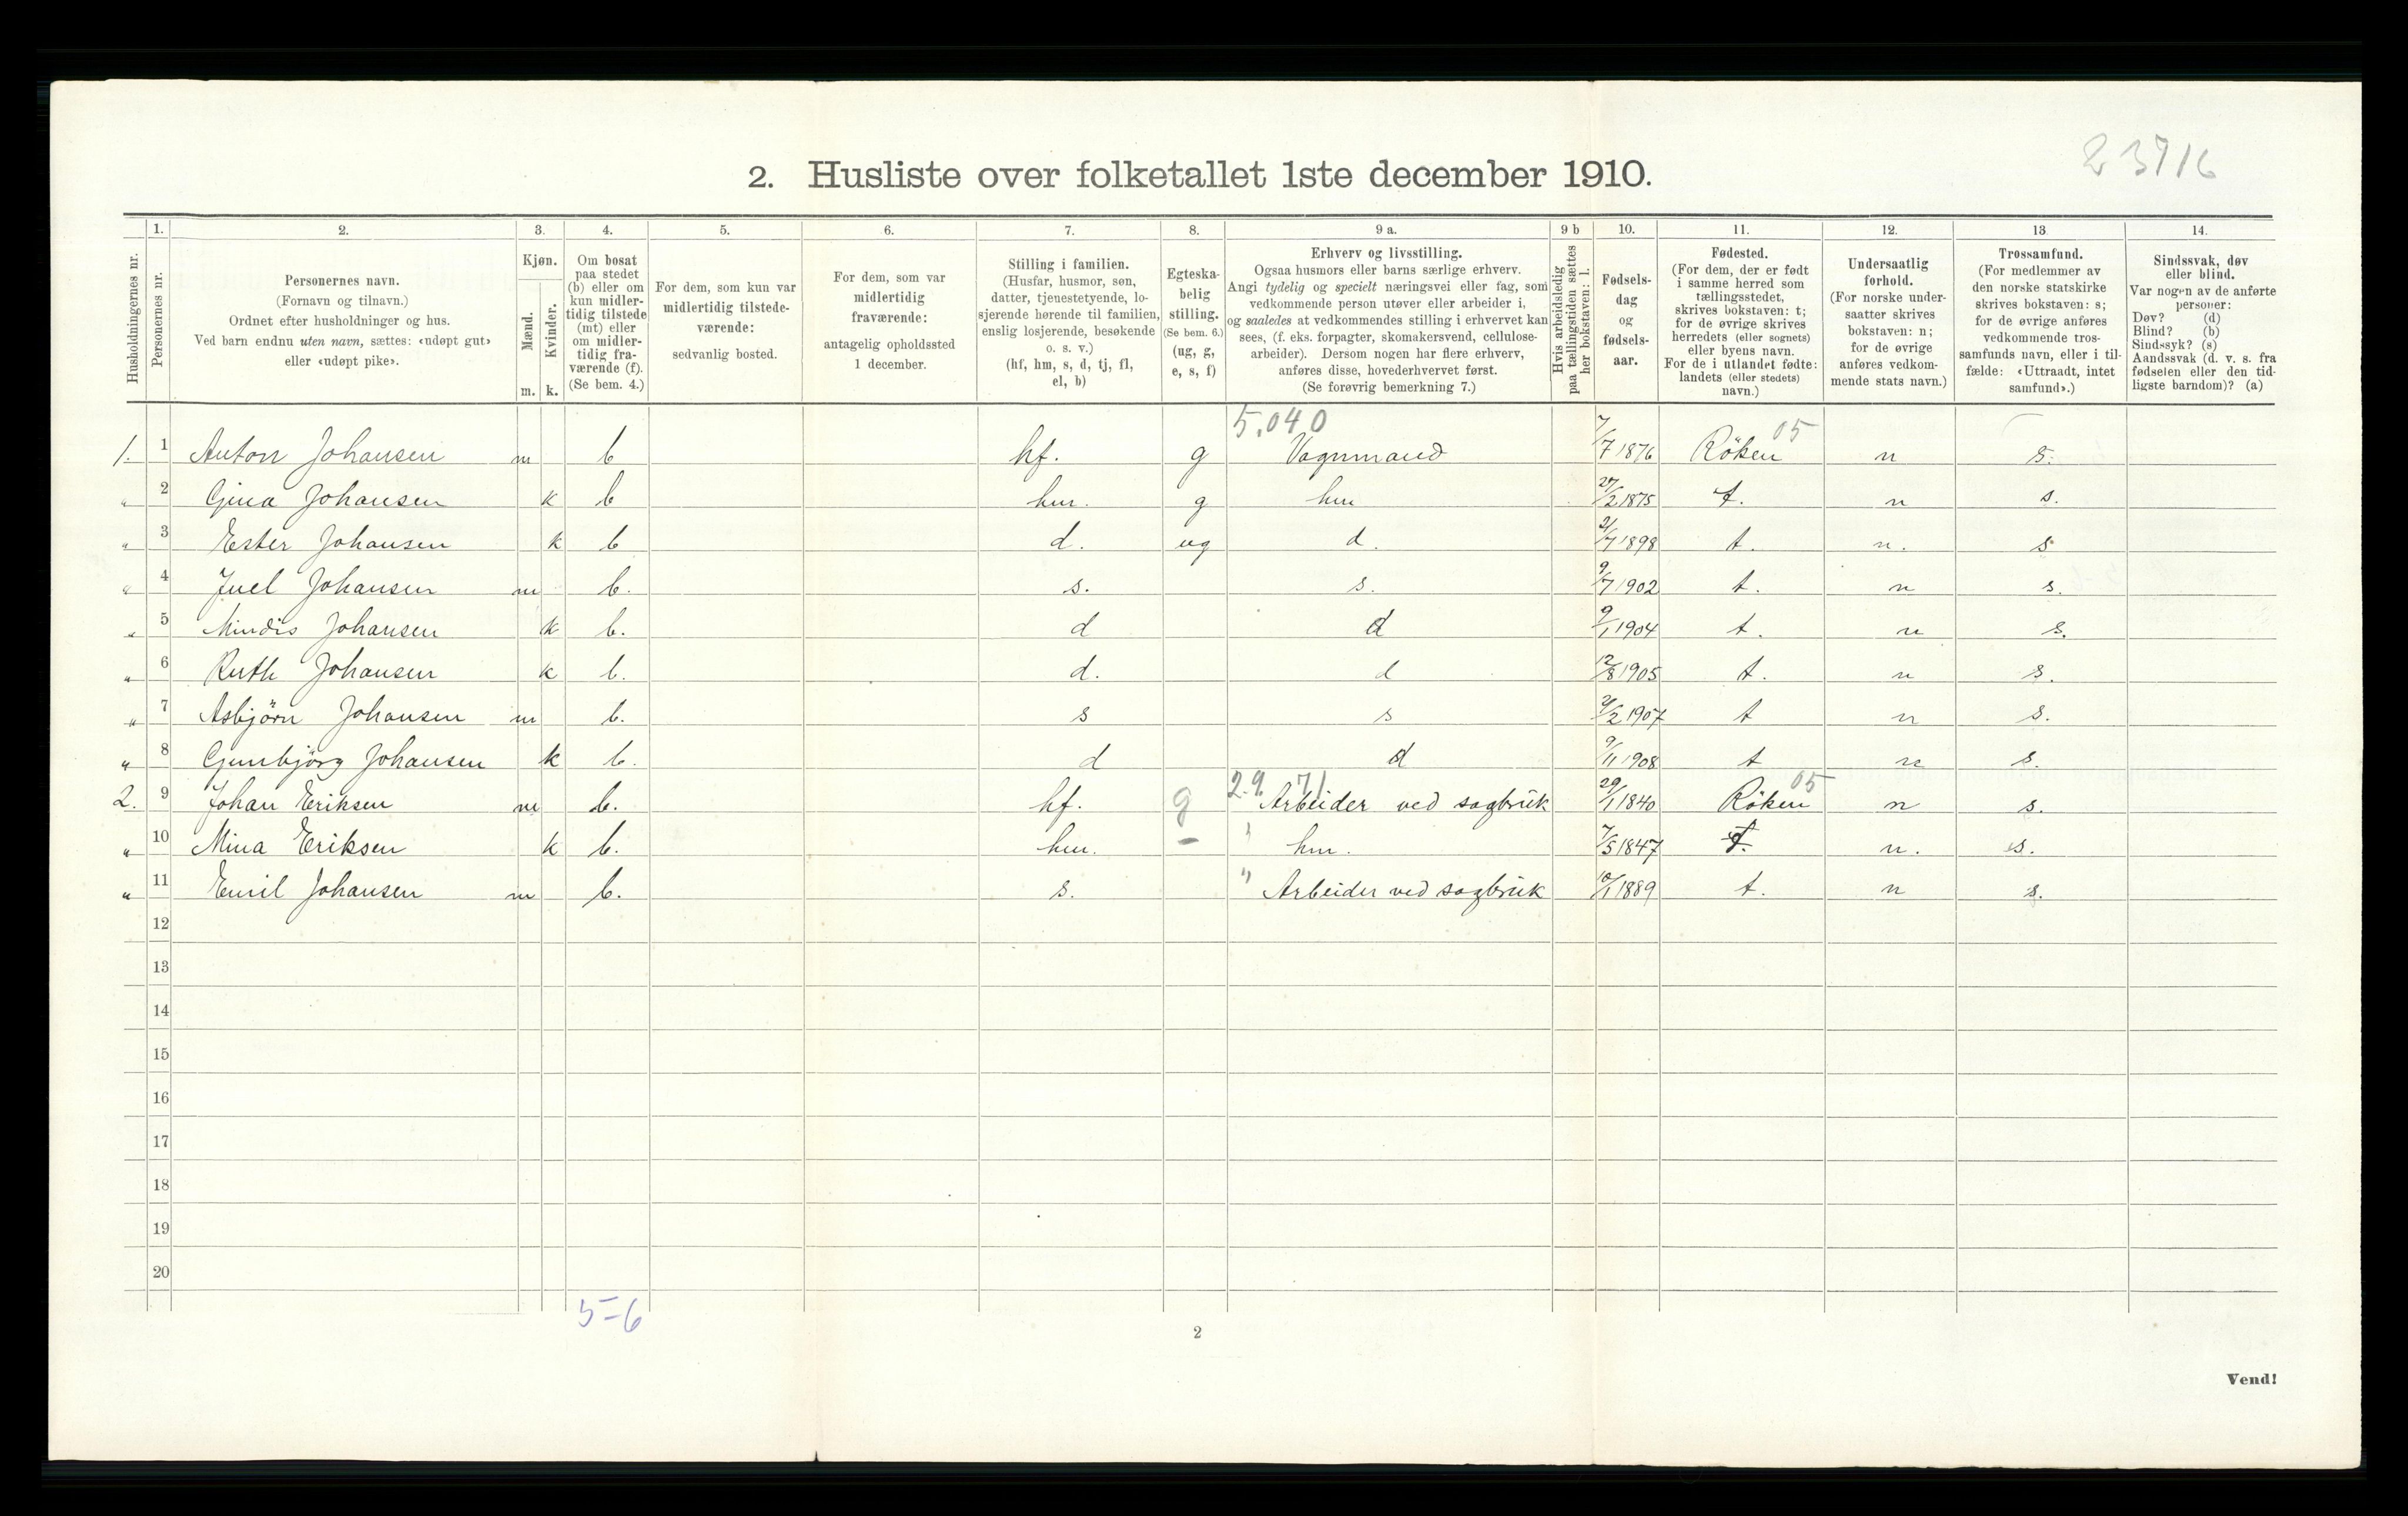 23716
2. Husliste over folketallet 1ste december 1910.
Husholdningernes nr.
1. Personernes nr.
2. Personernes navn.
(Fornavn og tilnavn.)
Ordnet efter husholdninger og hus.
Ved barn endnu uten navn, sættes: «udøpt gut»
eller «udøpt pike».
3. Kjøn.
Mænd. m.
Kvinder. k.
4. Om bosat
paa stedet
(b) eller om
kun midler-
tidig tilstede
(mt) eller
om midler-
tidig fra-
værende (f).
(Se bem. 4.)
5. For dem, som kun var
midlertidig tilstede-
værende:
sedvanlig bosted.
6. For dem, som var
midlertidig
fraværende:
antagelig opholdssted
1 december.
7. Stilling i familien.
(Husfar, husmor, søn,
datter, tjenestetyende, lo-
sjerende hørende til familien,
enslig losjerende, besøkende
o. s. v.)
(hf, hm, s, d, tj, fl,
el, b)
8. Egteska-
belig
stilling.
(Se bem. 6.)
(ug, g,
e, s, f)
9 a. Erhverv og livsstilling.
Ogsaa husmors eller barns særlige erhverv.
Angi tydelig og specielt næringsvei eller fag, som
vedkommende person utøver eller arbeider i,
og saaledes at vedkommendes stilling i erhvervet kan
sees, (f. eks. forpagter, skomakersvend, cellulose-
arbeider). Dersom nogen har flere erhverv,
anføres disse, hovederhvervet først.
(Se forøvrig bemerkning 7.)
9 b Hvis arbeidsledig
paa tællingstiden sættes
her bokstaven: l.
10. Fødsels-
dag
og
fødsels-
aar.
11. Fødested.
(For dem, der er født
i samme herred som
tællingsstedet,
skrives bokstaven: t;
for de øvrige skrives
herredets (eller sognets)
eller byens navn.
For de i utlandet fødte:
landets (eller stedets)
navn.)
12. Undersaatlig
forhold.
(For norske under-
saatter skrives
bokstaven: n;
for de øvrige
anføres vedkom-
mende stats navn.)
13. Trossamfund.
(For medlemmer av
den norske statskirke
skrives bokstaven: s;
for de øvrige anføres
vedkommende tros-
samfunds navn, eller i til-
fælde: «Uttraadt, intet
samfund».)
14. Sindssvak, døv
eller blind.
Var nogen av de anførte
personer:
Døv? (d)
Blind? (b)
Sindssyk? (s)
Aandssvak (d. v. s. fra
fødselen eller den tid-
ligste barndom)? (a)
5.040
1. 1 Anton Johansen m b hf. g Vognmand 7/7 1876 Röken 05 n s.
" 2 Gina Johansen k b hm. g hm 27/2 1875 t. n s.
" 3 Ester Johansen k b d. ug d. 21/7 1898 t. n. s
" 4 Juel Johansen m b. s. s. 9/7 1902 t. n s.
" 5 Mindis Johansen k b. d d 9/1 1904 t. n s.
" 6 Ruth Johansen k b. d. d 12/8 1905 t. n s.
" 7 Asbjörn Johansen m b. s s 2/2 1907 t n s.
" 8 Gunbjörg Johansen k b. d d 9/11 1908 t n s.
29.71
2. 9 Johan Eriksen m b. hf. g Arbeider ved sagbruk 29/1 1840 Röken 05 n s.
" 10 Mina Eriksen k b. hm. - " hm. 7/5 1847 t. n. s.
" 11 Emil Johansen m b. s. " Arbeider ved sagbruk 10/1 1889 t. n s.
12
13
14
15
16
17
18
19
20
5-6
2
Vend!